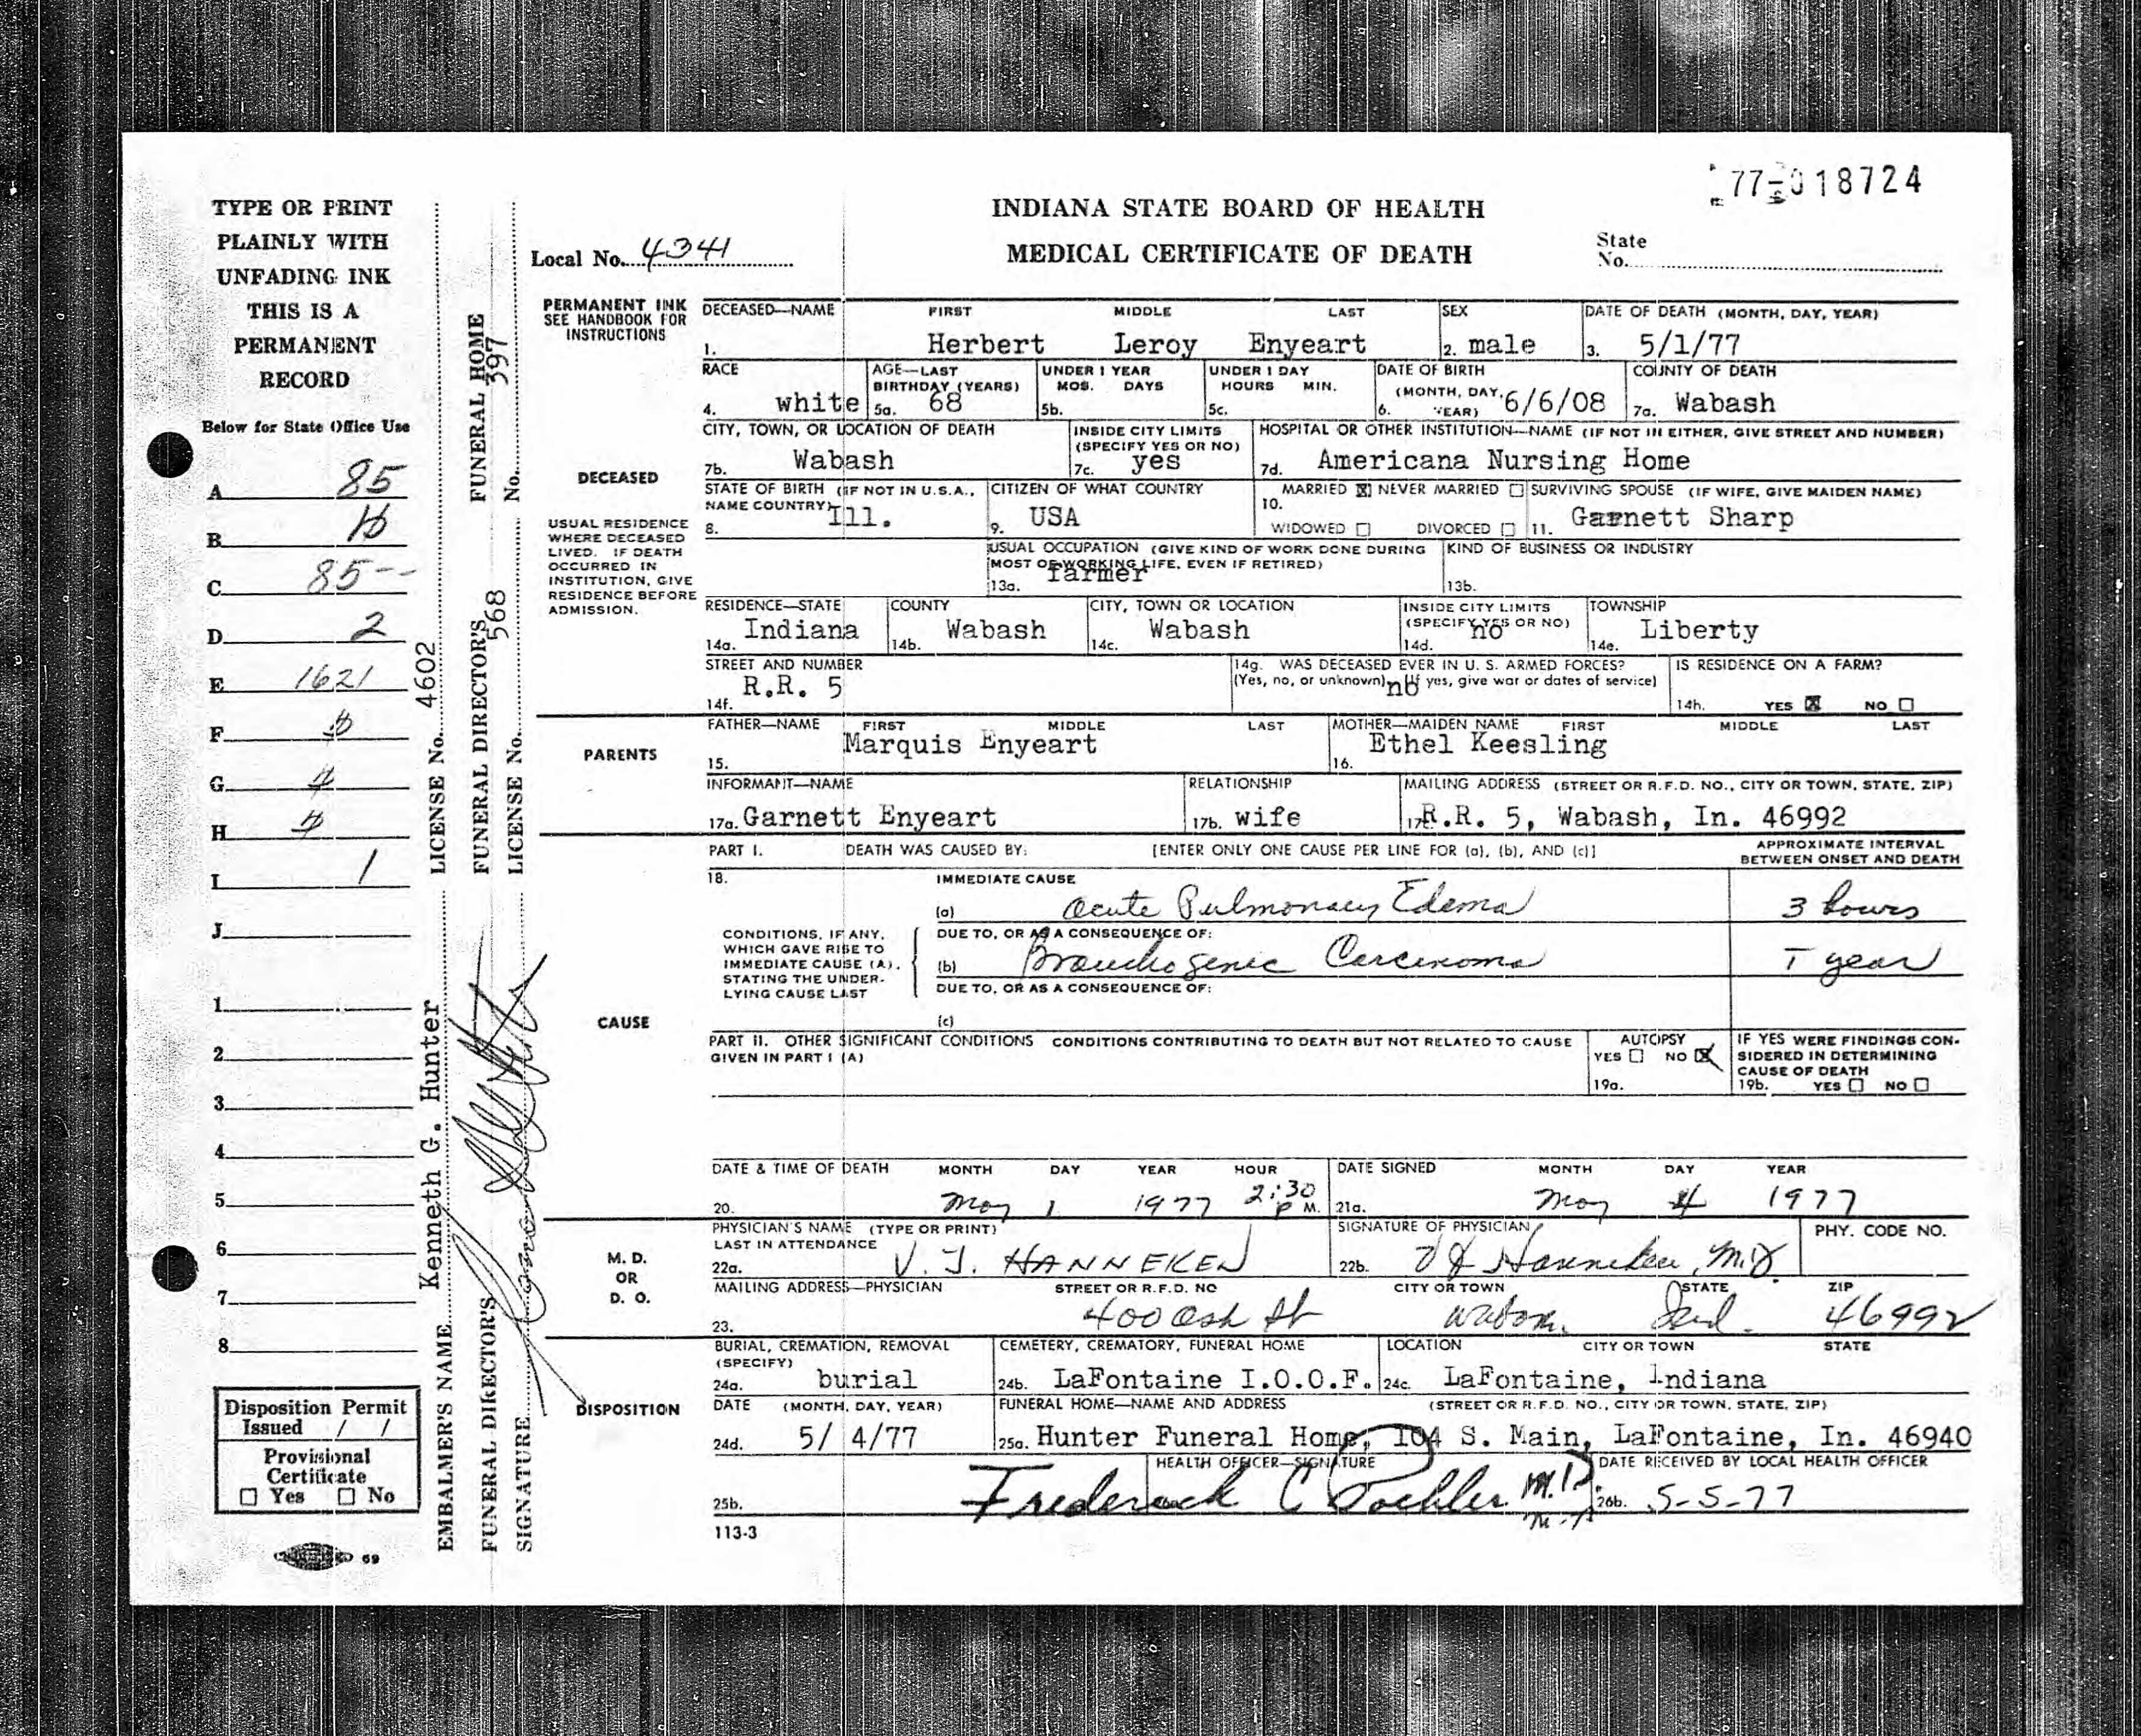 77-018724
INDIANA STATE BOARD OF HEALTH
MEDICAL CERTIFICATE OF DEATH
Local No. 4341
State No.
TYPE OR PRINT
PLAINLY WITH
UNFADING INK
THIS IS A
PERMANENT
RECORD
Below for State Office Use
A 85
B
C 85--
D 2
E 1621
F
G
H
I 1
J
1
2
3
4
5
6
7
8
Disposition Permit
Issued / /
Provisional
Certificate
☐ Yes ☐ No
69
EMBALMER'S NAME Kenneth G. Hunter LICENSE No. 4602
FUNERAL DIRECTOR'S FUNERAL DIRECTOR'S FUNERAL HOME
SIGNATURE LICENSE No. 568 No. 397
PERMANENT INK
SEE HANDBOOK FOR
INSTRUCTIONS
DECEASED—NAME FIRST MIDDLE LAST SEX DATE OF DEATH (MONTH, DAY, YEAR)
1. Herbert Leroy Enyeart 2. male 3. 5/1/77
RACE AGE—LAST UNDER 1 YEAR UNDER 1 DAY DATE OF BIRTH COUNTY OF DEATH
BIRTHDAY (YEARS) MOS. DAYS HOURS MIN. (MONTH, DAY,
4. white 5a. 68 5b. 5c. 6. YEAR) 6/6/08 7a. Wabash
CITY, TOWN, OR LOCATION OF DEATH INSIDE CITY LIMITS HOSPITAL OR OTHER INSTITUTION—NAME (IF NOT IN EITHER, GIVE STREET AND NUMBER)
(SPECIFY YES OR NO)
7b. Wabash 7c. yes 7d. Americana Nursing Home
DECEASED
STATE OF BIRTH (IF NOT IN U.S.A., CITIZEN OF WHAT COUNTRY MARRIED ☒ NEVER MARRIED ☐ SURVIVING SPOUSE (IF WIFE, GIVE MAIDEN NAME)
NAME COUNTRY) 10.
8. Ill. 9. USA WIDOWED ☐ DIVORCED ☐ 11. Garnett Sharp
USUAL RESIDENCE
WHERE DECEASED
LIVED. IF DEATH
OCCURRED IN
INSTITUTION, GIVE
RESIDENCE BEFORE
ADMISSION.
USUAL OCCUPATION (GIVE KIND OF WORK DONE DURING KIND OF BUSINESS OR INDUSTRY
MOST OF WORKING LIFE, EVEN IF RETIRED)
13a. farmer 13b.
RESIDENCE—STATE COUNTY CITY, TOWN OR LOCATION INSIDE CITY LIMITS TOWNSHIP
(SPECIFY YES OR NO)
14a. Indiana 14b. Wabash 14c. Wabash 14d. no 14e. Liberty
STREET AND NUMBER 14g. WAS DECEASED EVER IN U. S. ARMED FORCES? IS RESIDENCE ON A FARM?
(Yes, no, or unknown) no (If yes, give war or dates of service)
14f. R.R. 5 14h. YES ☒ NO ☐
PARENTS
FATHER—NAME FIRST MIDDLE LAST MOTHER—MAIDEN NAME FIRST MIDDLE LAST
15. Marquis Enyeart 16. Ethel Keesling
INFORMANT—NAME RELATIONSHIP MAILING ADDRESS (STREET OR R.F.D. NO., CITY OR TOWN, STATE, ZIP)
17a. Garnett Enyeart 17b. wife 17c. R.R. 5, Wabash, In. 46992
PART I. DEATH WAS CAUSED BY: [ENTER ONLY ONE CAUSE PER LINE FOR (a), (b), AND (c)] APPROXIMATE INTERVAL
BETWEEN ONSET AND DEATH
18. IMMEDIATE CAUSE
(a) Acute Pulmonary Edema 3 hours
CONDITIONS, IF ANY,
WHICH GAVE RISE TO
IMMEDIATE CAUSE (A),
STATING THE UNDER-
LYING CAUSE LAST
DUE TO, OR AS A CONSEQUENCE OF:
(b) Bronchogenic Carcinoma 1 year
DUE TO, OR AS A CONSEQUENCE OF:
(c)
CAUSE
PART II. OTHER SIGNIFICANT CONDITIONS CONDITIONS CONTRIBUTING TO DEATH BUT NOT RELATED TO CAUSE
GIVEN IN PART I (A)
AUTOPSY
YES ☐ NO ☒
19a.
IF YES WERE FINDINGS CON-
SIDERED IN DETERMINING
CAUSE OF DEATH
19b. YES ☐ NO ☐
DATE & TIME OF DEATH MONTH DAY YEAR HOUR DATE SIGNED MONTH DAY YEAR
20. May 1 1977 2:30 P M. 21a. May 4 1977
M. D.
OR
D. O.
PHYSICIAN'S NAME (TYPE OR PRINT) SIGNATURE OF PHYSICIAN PHY. CODE NO.
LAST IN ATTENDANCE
22a. V. J. HANNEKEN 22b. V J Hanneken, M.D.
MAILING ADDRESS—PHYSICIAN STREET OR R.F.D. NO CITY OR TOWN STATE ZIP
23. 400 Ash St Wabash Ind. 46992
DISPOSITION
BURIAL, CREMATION, REMOVAL CEMETERY, CREMATORY, FUNERAL HOME LOCATION CITY OR TOWN STATE
(SPECIFY)
24a. burial 24b. LaFontaine I.O.O.F. 24c. LaFontaine, Indiana
DATE (MONTH, DAY, YEAR) FUNERAL HOME—NAME AND ADDRESS (STREET OR R.F.D. NO., CITY OR TOWN, STATE, ZIP)
24d. 5/ 4/77 25a. Hunter Funeral Home, 104 S. Main, LaFontaine, In. 46940
HEALTH OFFICER—SIGNATURE DATE RECEIVED BY LOCAL HEALTH OFFICER
25b. Frederick C Poehler M.D. 26b. 5-5-77
113-3